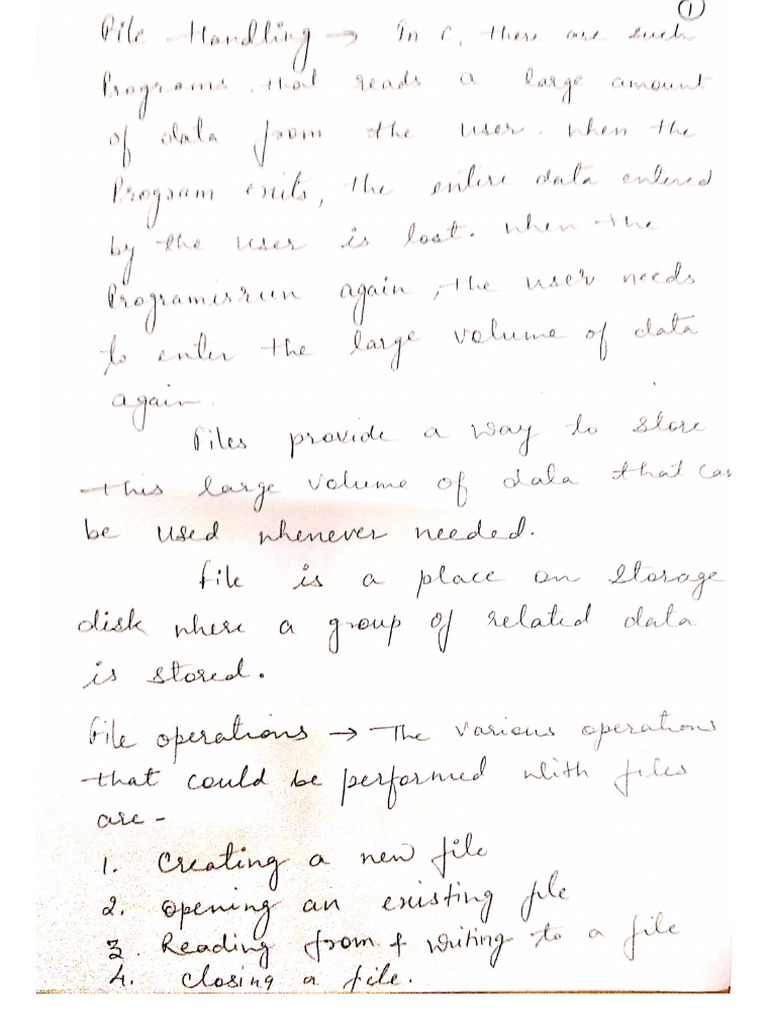 1
File Handling → In C, there are such
Programs, that reads a large amount
of data from the user. when the
Program exits, the entire data entered
by the user is lost. when the
Program is run again, the user needs
to enter the large volume of data
again.
Files provide a way to store
this large volume of data that can
be used whenever needed.
File is a place on storage
disk where a group of related data
is stored.
File operations → The various operations
that could be performed with files
are -
1. Creating a new file
2. opening an existing file
3. Reading from & writing to a file
4. closing a file.